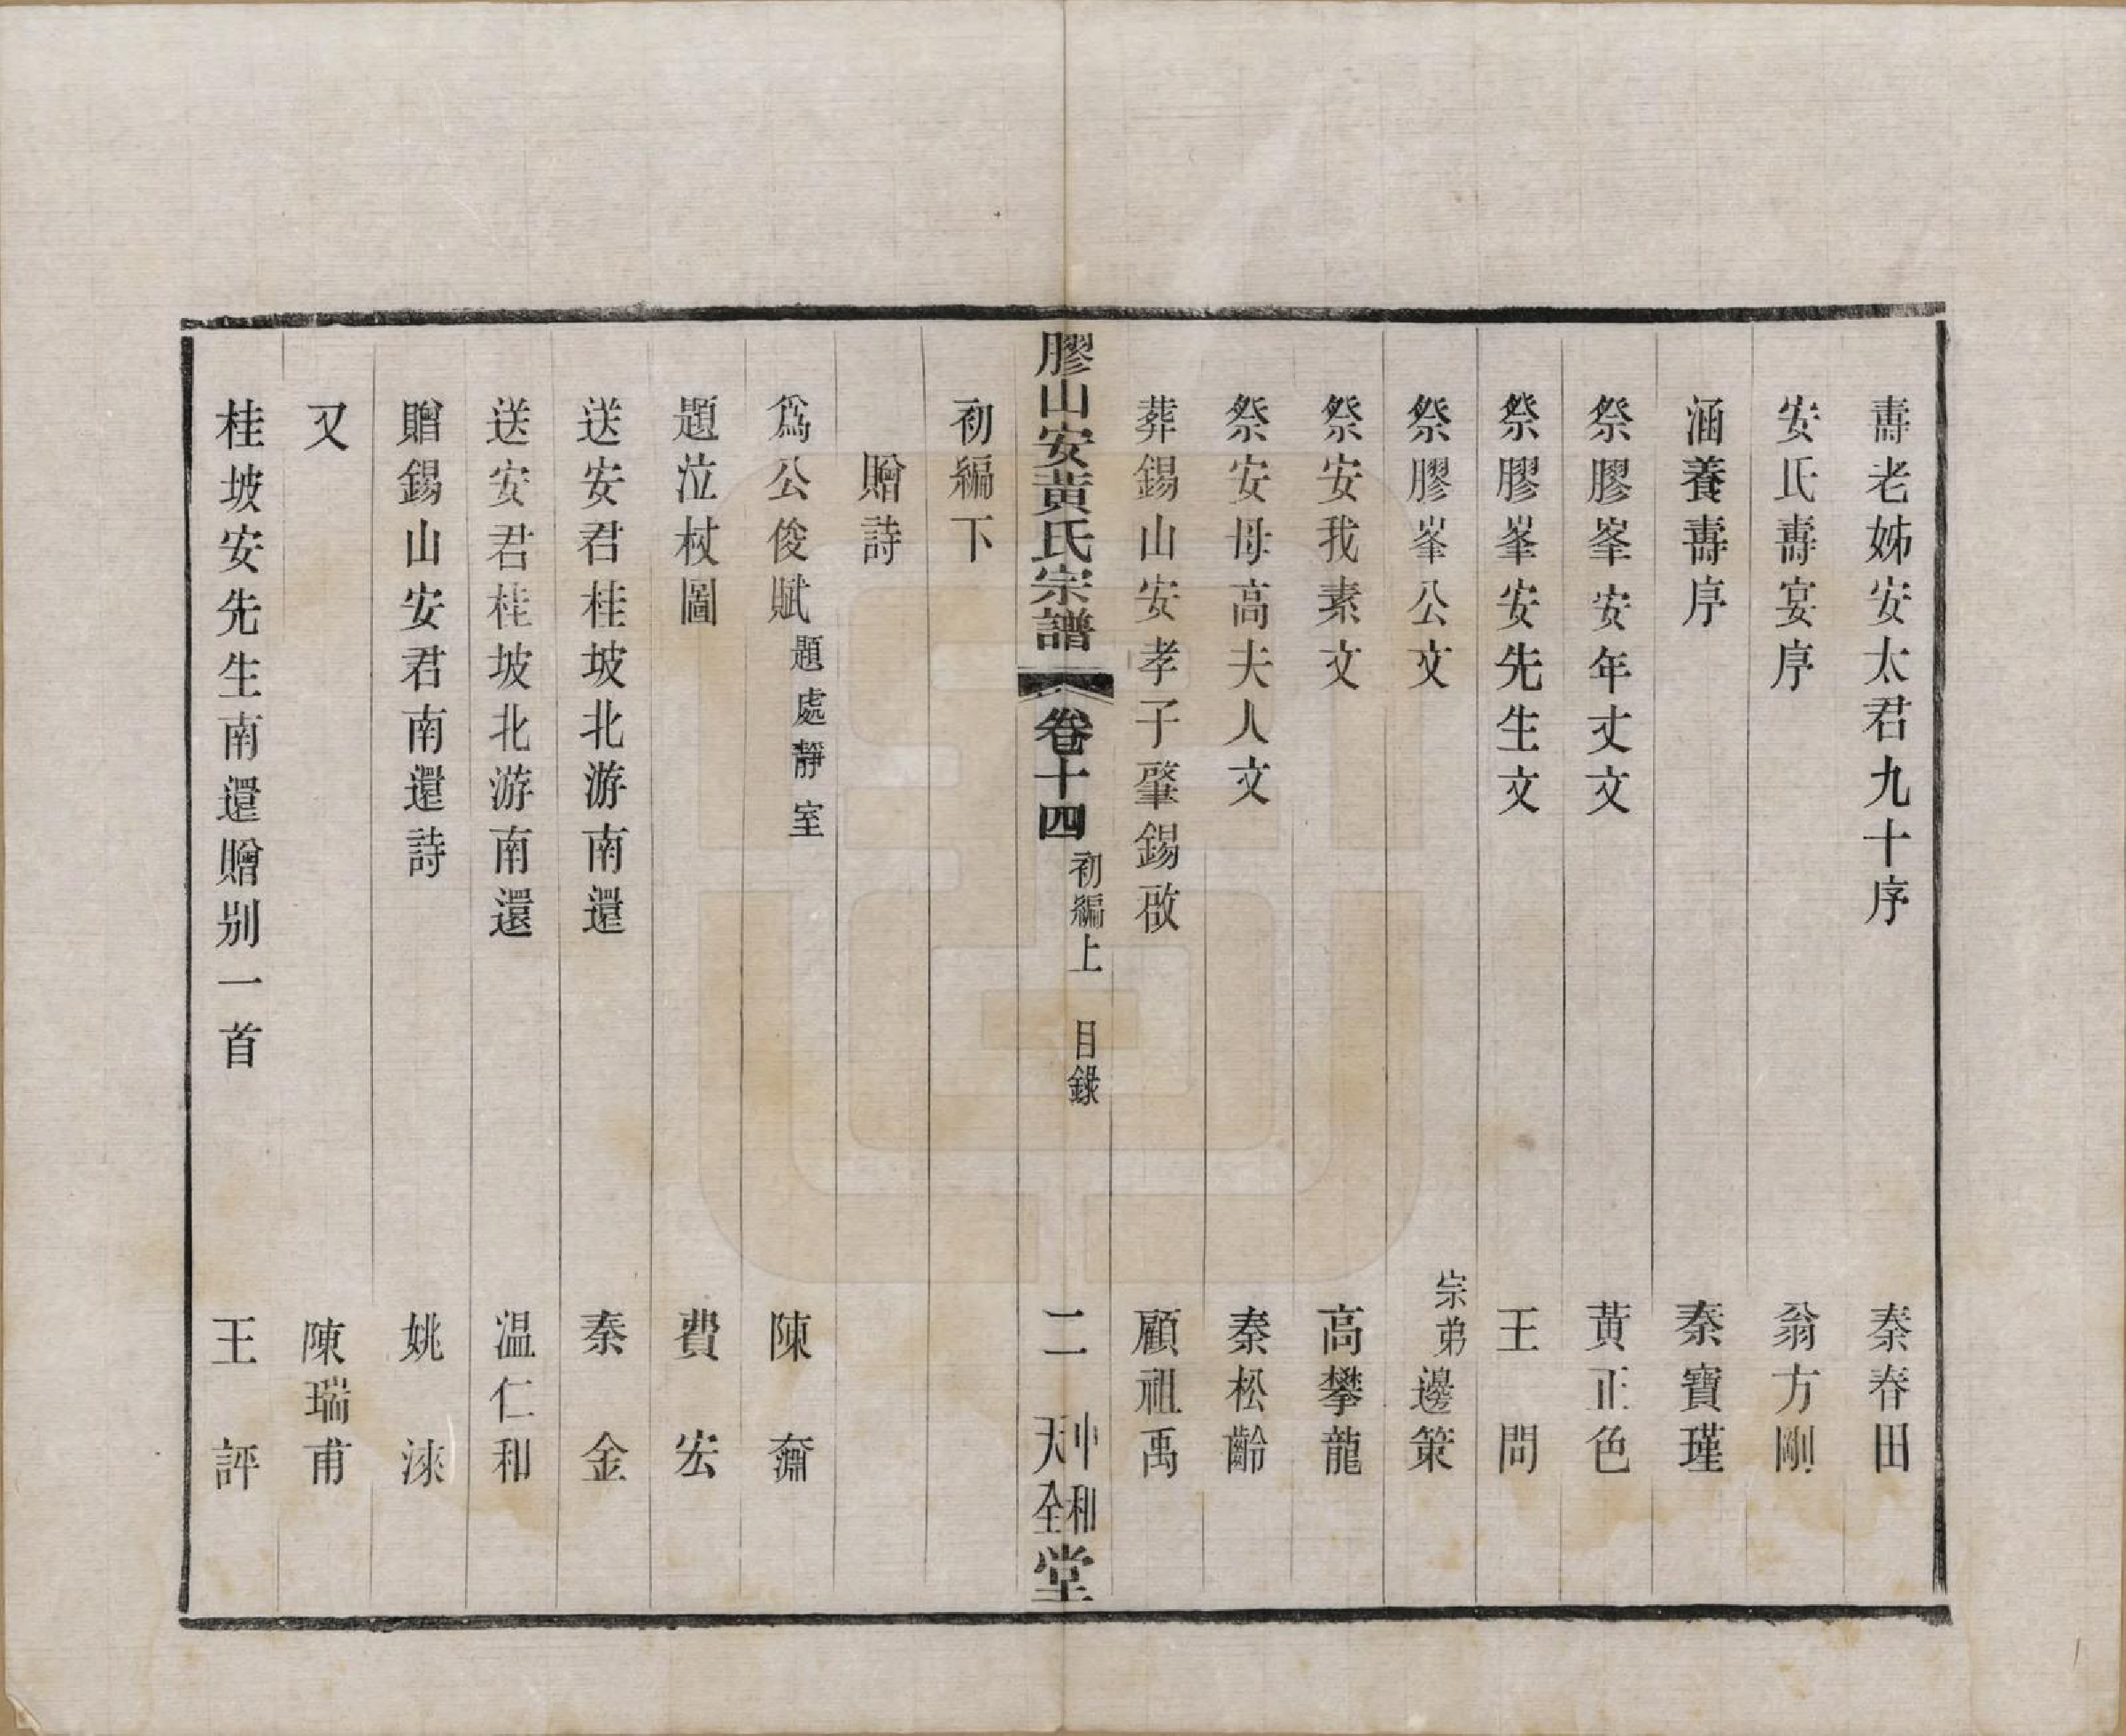 壽老姊安太君九十序　秦春田
安氏壽宴序　翁方剛
涵養壽序　秦寶瑾
祭膠峯安年丈文　黃正色
祭膠峯安先生文　王問
祭膠峯公文　宗弟邊策
祭安我素文　高攀龍
祭安母高夫人文　秦松齡
葬錫山安孝子肇錫啟　顧祖禹
膠山安黃氏宗譜　卷十四　初編上　目錄　二　中和　天全　堂
初編下
贈詩
爲公俊賦　題處靜室　陳
題泣杖圖　費宏
送安君桂坡北游南還　秦金
送安君桂坡北游南還　温仁和
贈錫山安君南還詩　姚淶
又　陳瑞甫
桂坡安先生南還贈別一首　王評